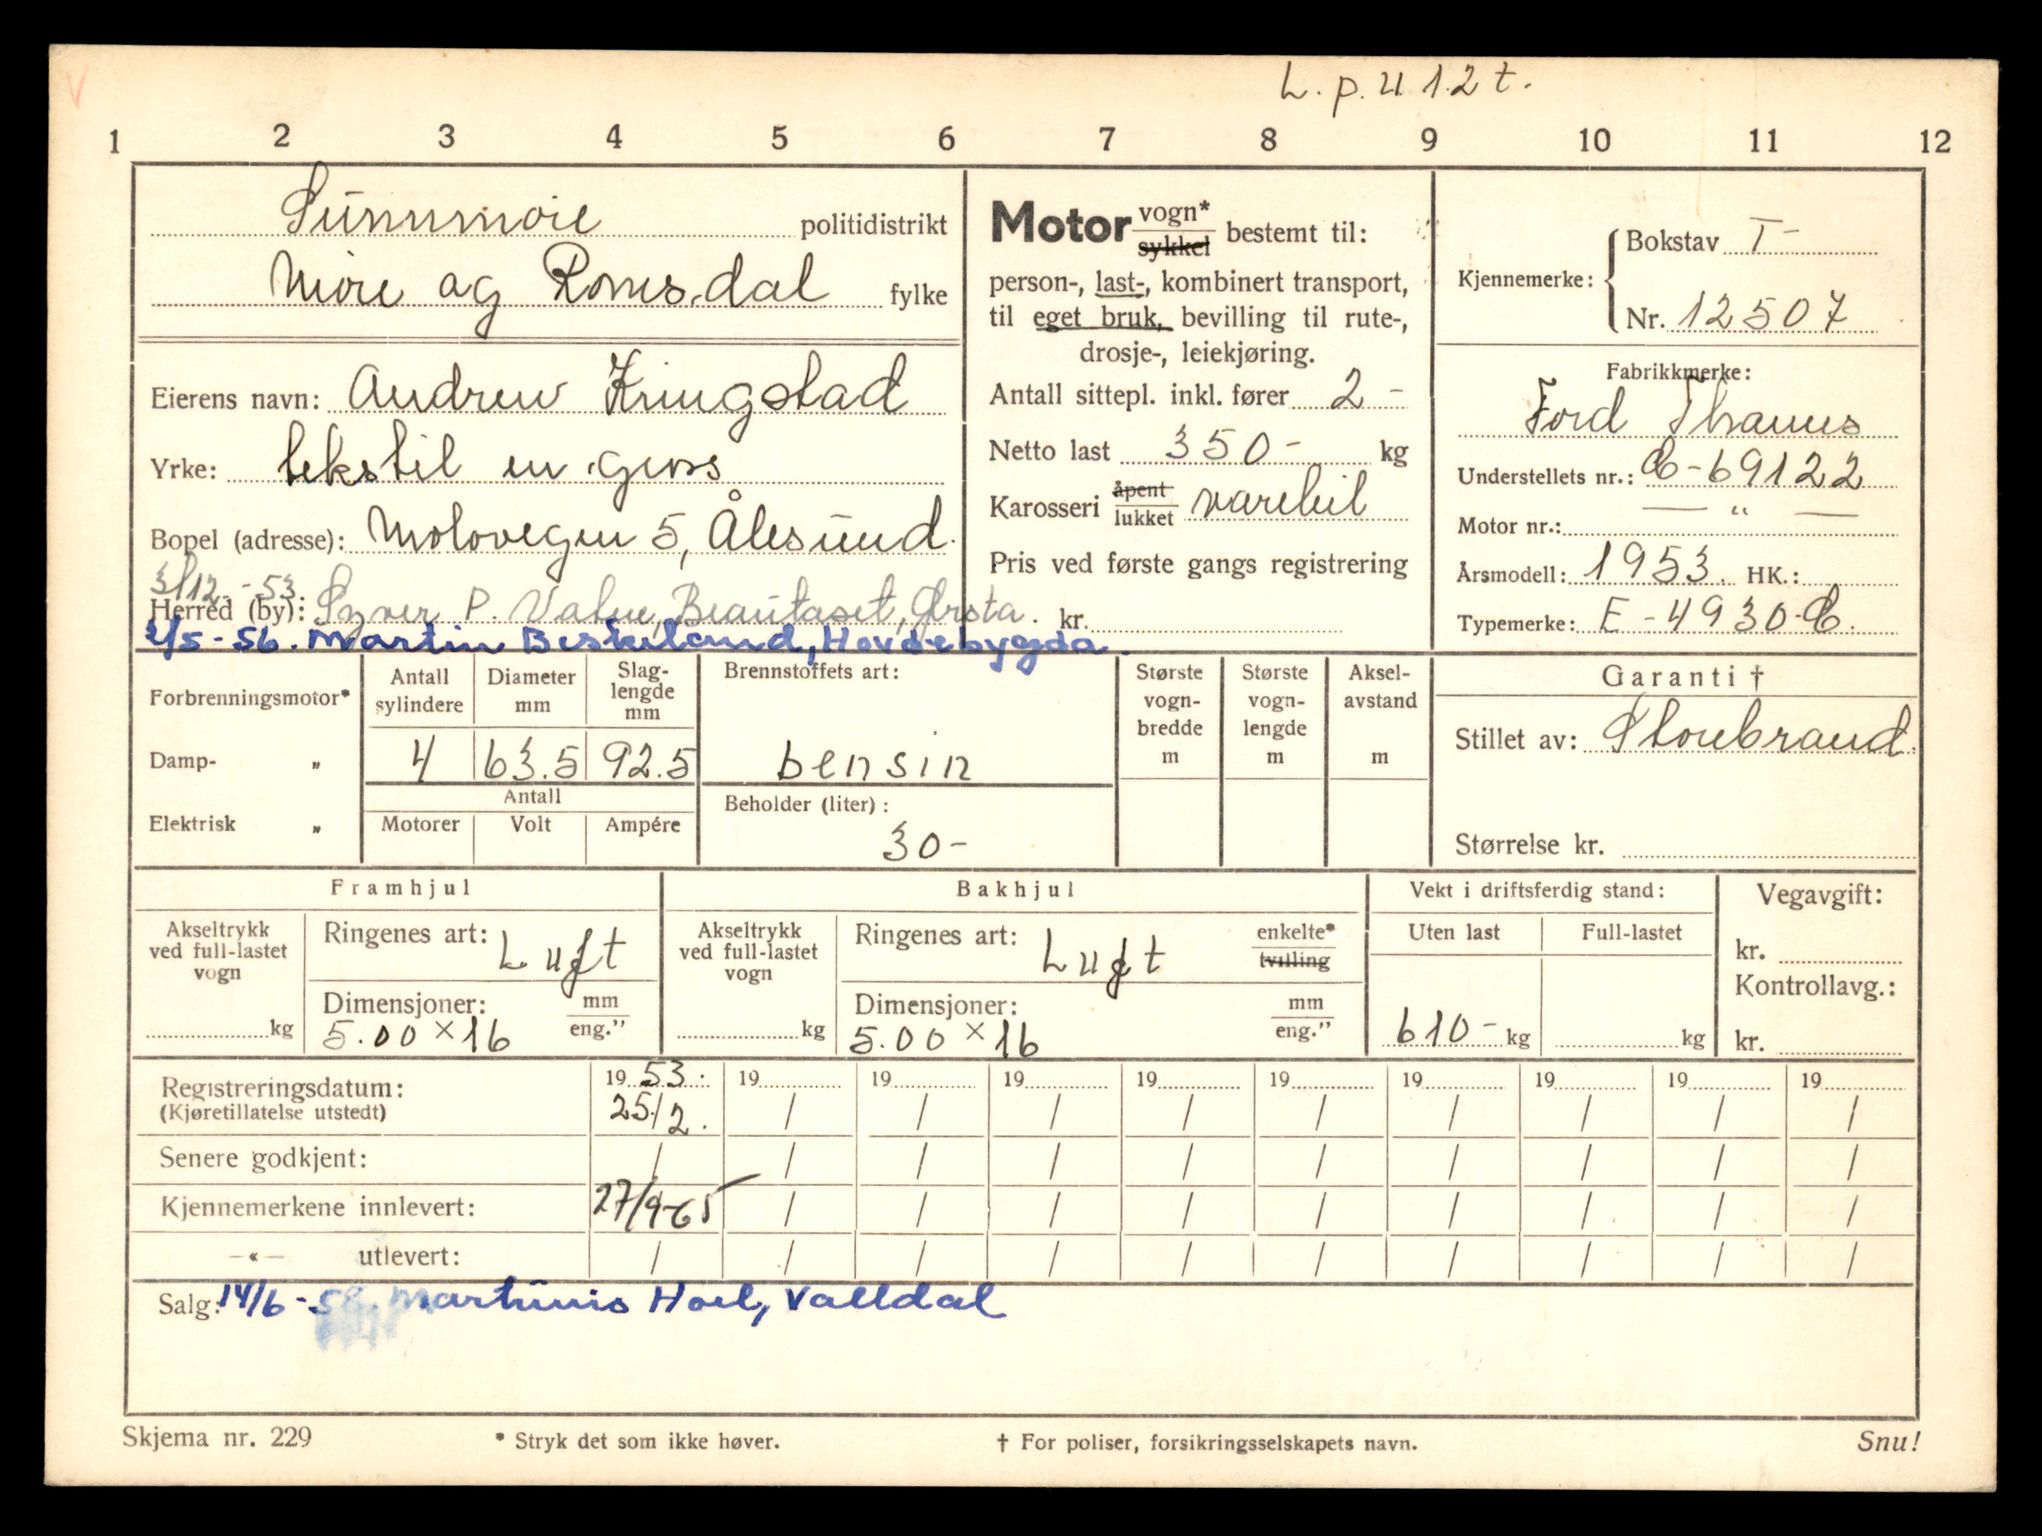 L. p. u. 1.2 t.
1 2 3 4 5 6 7 8 9 10 11 12
Sunnmøre politidistrikt
Møre og Romsdal fylke
Eierens navn: Andrew Kringstad
Yrke: tekstil en gros
Bopel (adresse): Molovegen 5, Ålesund.
31/12.-53.
Herred (by): Syver P. Vatne, Ørsta.
2/5-56. Martin Beskeland, Hovdebygda.
Motor vogn* sykkel bestemt til:
person-, last-, kombinert transport,
til eget bruk, bevilling til rute-,
drosje-, leiekjøring.
Antall sittepl. inkl. fører 2 -
Netto last 350- kg
Karosseri åpent lukket varebil
Pris ved første gangs registrering
kr.
Kjennemerke: Bokstav T-
Nr. 12507
Fabrikkmerke:
Ford Thames
Understellets nr.: C-69122
Motor nr.: — " —
Årsmodell: 1953. HK.:
Typemerke: E-4930-C.
Forbrenningsmotor*
Damp- „
Elektrisk „
Antall sylindere Diameter mm Slag-lengde mm
4 63.5 92.5
Antall
Motorer Volt Ampére
Brennstoffets art:
bensin
Beholder (liter):
30-
Største vogn-bredde m
Største vogn-lengde m
Aksel-avstand m
Garanti †
Stillet av: Storebrand.
Størrelse kr.
Framhjul
Akseltrykk ved full-lastet vogn
kg
Ringenes art: Luft
Dimensjoner: mm eng.”
5.00 x 16
Bakhjul
Akseltrykk ved full-lastet vogn
kg
Ringenes art: Luft enkelte* tvilling
Dimensjoner: mm eng.”
5.00 x 16
Vekt i driftsferdig stand:
Uten last Full-lastet
610- kg kg
Vegavgift:
kr.
Kontrollavg.:
kr.
Registreringsdatum: 19 53. 19 19 19 19 19 19 19 19 19
(Kjøretillatelse utstedt) 25/2. / / / / / / / / /
Senere godkjent: / / / / / / / / / /
Kjennemerkene innlevert: 27/9-65 / / / / / / / / /
—«— utlevert: / / / / / / / / / /
Salg: 14/6-58. Martinus Hoel, Valldal
Skjema nr. 229 * Stryk det som ikke høver. † For poliser, forsikringsselskapets navn. Snu!